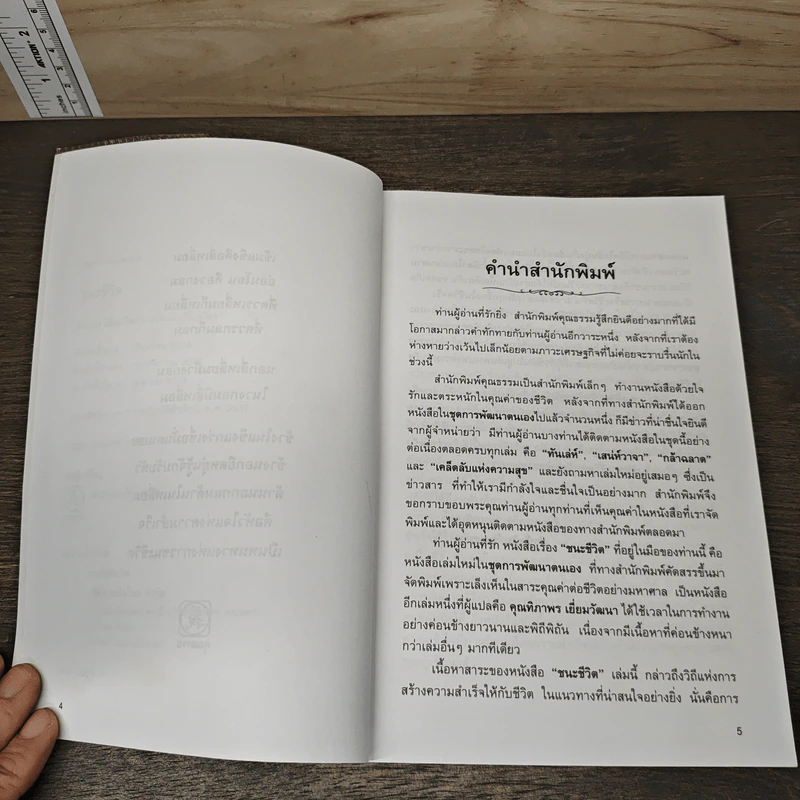 คำนำสำนักพิมพ์
ท่านผู้อ่านที่รักยิ่ง สำนักพิมพ์คุณธรรมรู้สึกยินดีอย่างมากที่ได้มี
โอกาสมากล่าวคำทักทายกับท่านผู้อ่านอีกวาระหนึ่ง หลังจากที่เราต้อง
ห่างหายว่างเว้นไปเล็กน้อยตามภาวะเศรษฐกิจที่ไม่ค่อยจะราบรื่นนักใน
ช่วงนี้
สำนักพิมพ์คุณธรรมเป็นสำนักพิมพ์เล็กๆ ทำงานหนังสือด้วยใจ
รักและตระหนักในคุณค่าของชีวิต หลังจากที่ทางสำนักพิมพ์ได้ออก
หนังสือในชุดการพัฒนาตนเองไปแล้วจำนวนหนึ่ง ก็มีข่าวที่น่าชื่นใจยินดี
จากผู้จำหน่ายว่า มีท่านผู้อ่านบางท่านได้ติดตามหนังสือในชุดนี้อย่าง
ต่อเนื่องตลอดครบทุกเล่ม คือ "ทันเล่ห์", "เสน่ห์วาจา", "กล้าฉลาด"
และ "เคล็ดลับแห่งความสุข" และยังถามหาเล่มใหม่อยู่เสมอๆ ซึ่งเป็น
ข่าวสาร ที่ทำให้เรามีกำลังใจและชื่นใจเป็นอย่างมาก สำนักพิมพ์จึง
ขอกราบขอบพระคุณท่านผู้อ่านทุกท่านที่เห็นคุณค่าในหนังสือที่เราจัด
พิมพ์และได้อุดหนุนติดตามหนังสือของทางสำนักพิมพ์ตลอดมา
ท่านผู้อ่านที่รัก หนังสือเรื่อง "ชนะชีวิต" ที่อยู่ในมือของท่านนี้ คือ
หนังสือเล่มใหม่ในชุดการพัฒนาตนเอง ที่ทางสำนักพิมพ์คัดสรรขึ้นมา
จัดพิมพ์เพราะเล็งเห็นในสาระคุณค่าต่อชีวิตอย่างมหาศาล เป็นหนังสือ
อีกเล่มหนึ่งที่ผู้แปลคือ คุณทิภาพร เยี่ยมวัฒนา ได้ใช้เวลาในการทำงาน
อย่างค่อนข้างยาวนานและพิถีพิถัน เนื่องจากมีเนื้อหาที่ค่อนข้างหนา
กว่าเล่มอื่นๆ มากทีเดียว
เนื้อหาสาระของหนังสือ "ชนะชีวิต" เล่มนี้ กล่าวถึงวิถีแห่งการ
สร้างความสำเร็จให้กับชีวิต ในแนวทางที่น่าสนใจอย่างยิ่ง นั่นคือการ
4
5